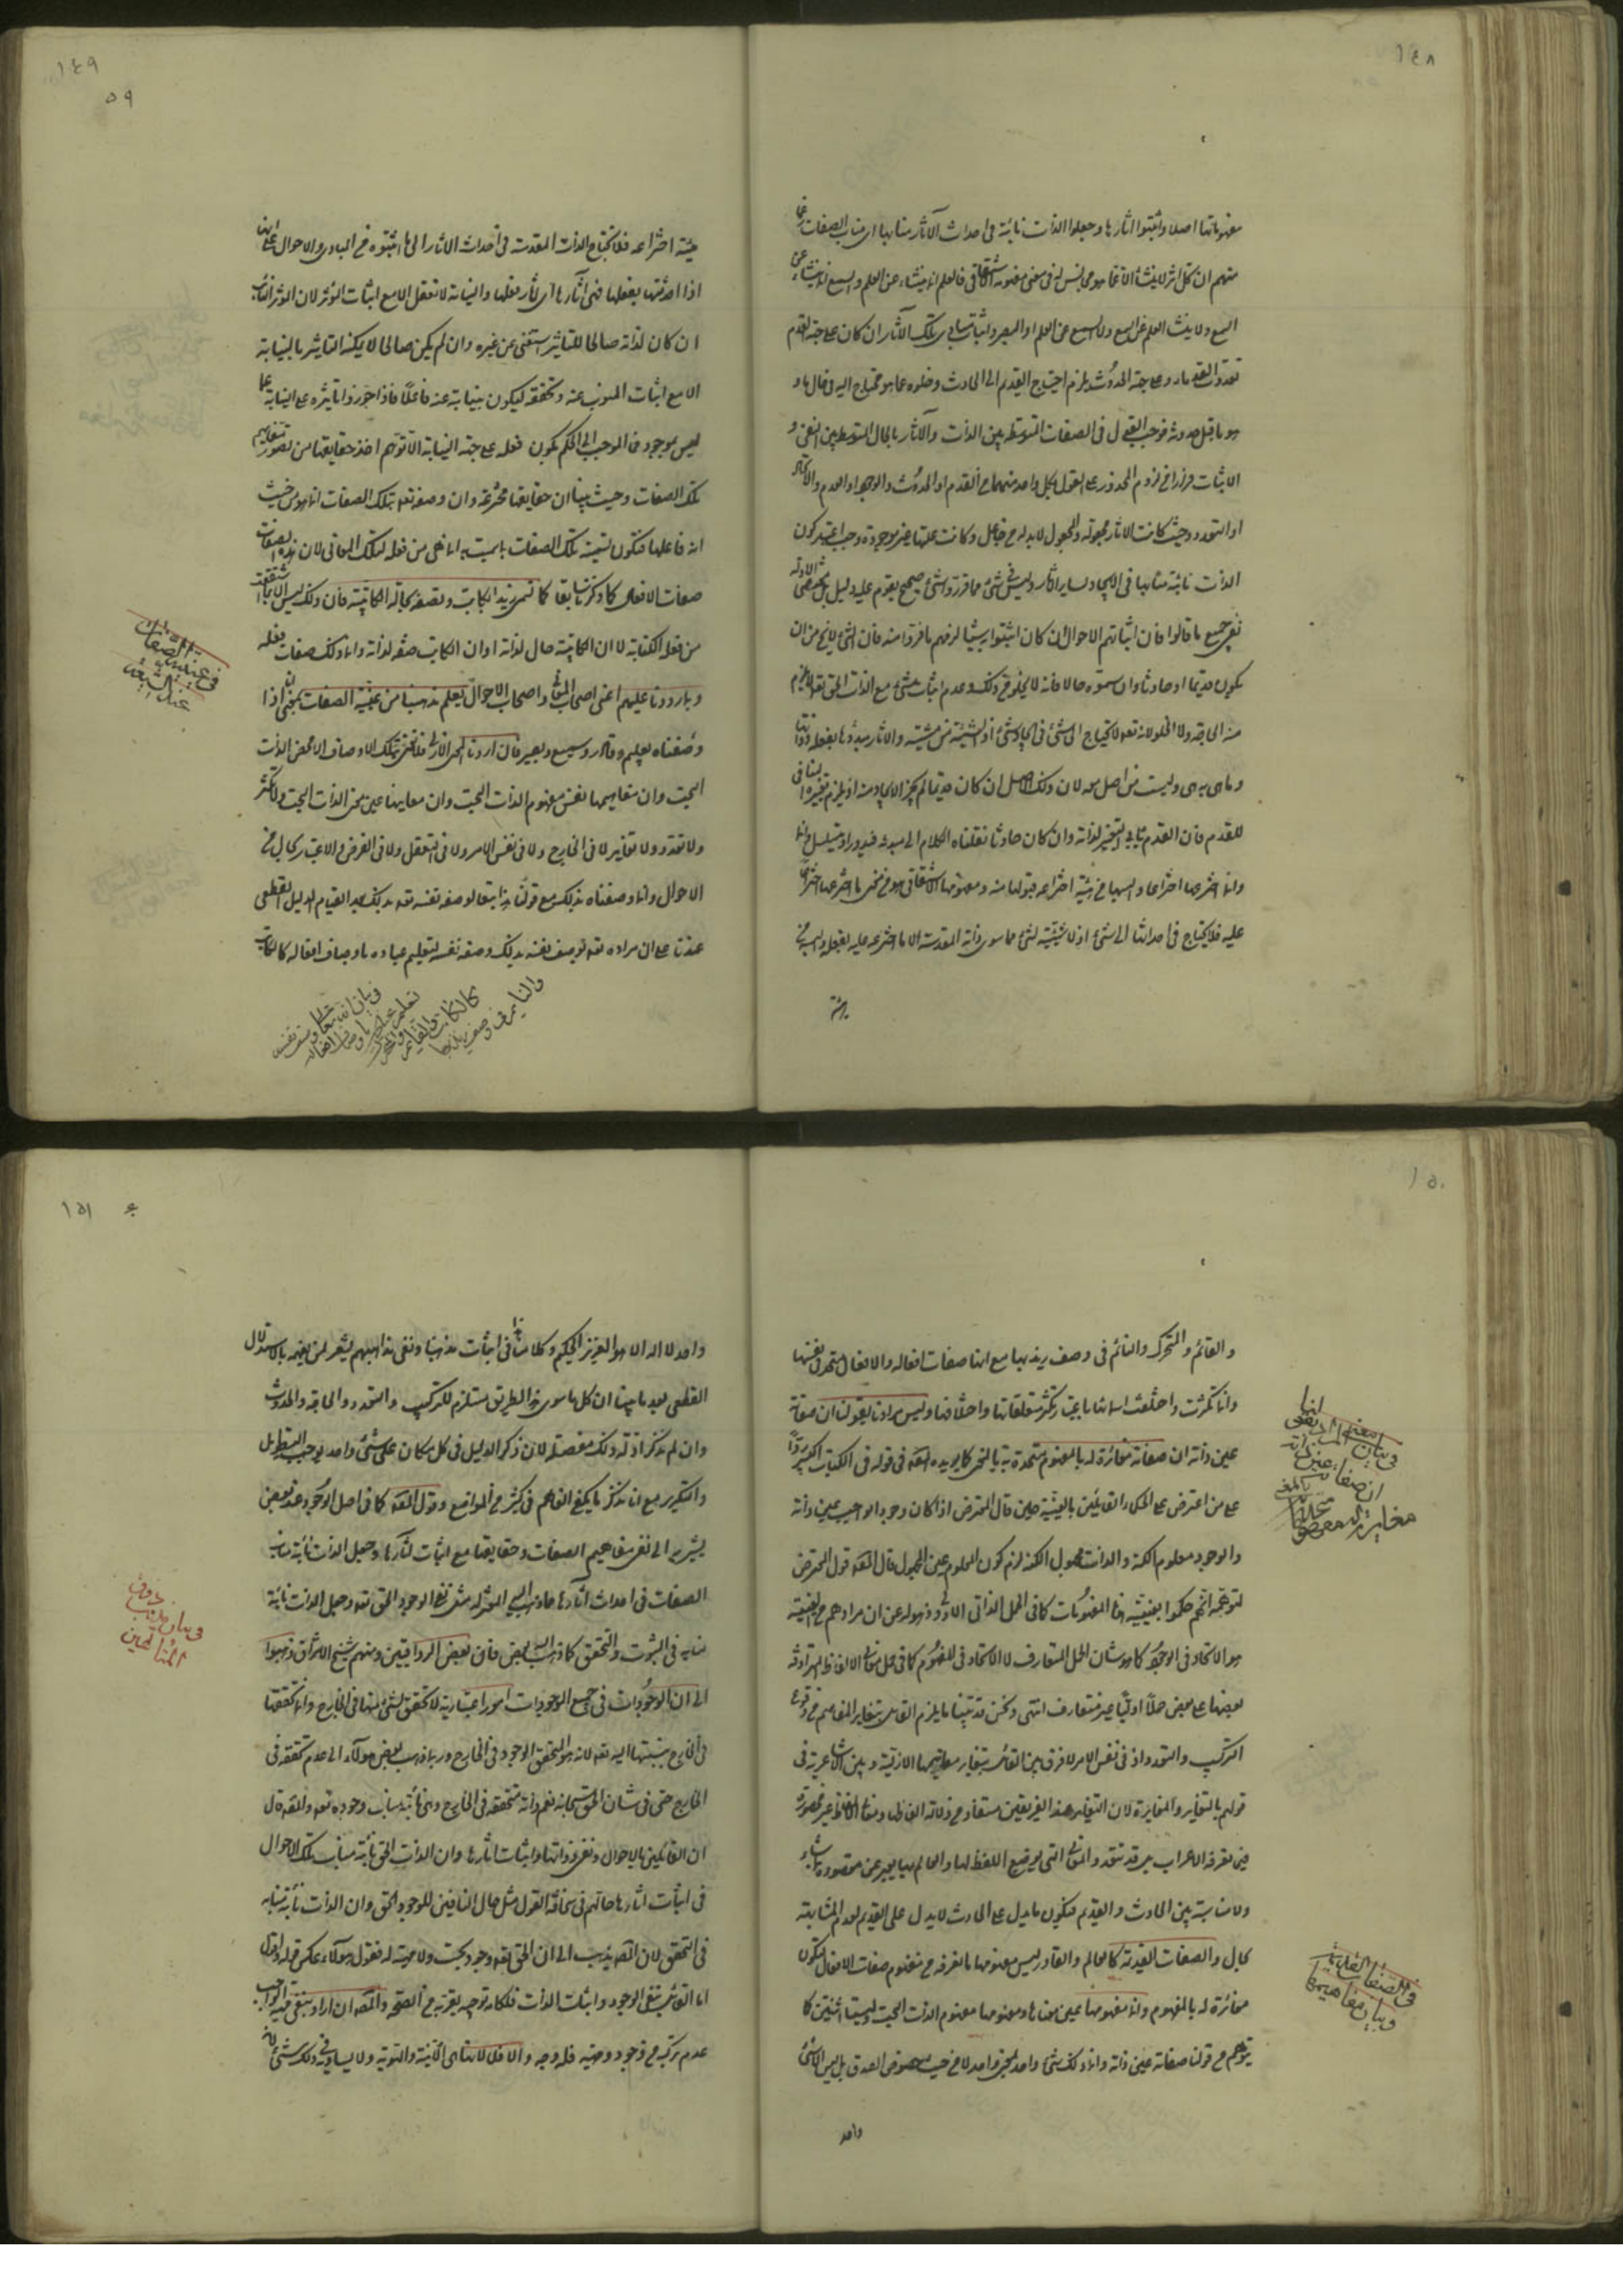 ١٤٨
مفهوماتها اصلا واثبتوا آثارها وجعلوا الذات نائبة في احداث الآثار منابها اى مناب الصفات
منهم ان كل اثر لا ينشأ الا عما هو من جنسه في معنى مفهومه الاشتقاقى فالعلم انه ينشاء عن العلم والسمع انه ينشاء عن
السمع ولا ينشأ العلم عن السمع ولا السمع عن العلم او البصر واثبات مبادى تلك الآثار ان كان على جهة القدم
تعددت القدماء وعلى جهة الحدوث يلزم احتياج القديم الى الحادث وخلوه عما هو محتاج اليه في حال ما و
هو ما قبل حدوثه فوجب القول في الصفات المتوسطة بين الذات والآثار بالحال المتوسط بين النفي و
الاثبات فرارا من لزوم المحذور على القول بكل واحد منهما من القدم او الحدوث والوجود او العدم والاتحاد
او التعدد وحيث كانت الاثار مجعولة والمجعول لابد له من جاعل وكانت علتها غير موجودة وجب اعتبار كون
الذات نائبة منابها في الايجاد وساير الآثار وليس في شئ مما قرروا شئ صحيح يقوم عليه دليل بل مقتضى الادلة
نفى جميع ما قالوا فان اثباتهم الاحوال ان كان اثبتوا به شيئا لزمهم ما فروا منه فان الشئ لا يخ من ان
يكون قديما او حادثا وان سموه حالا فانه لا يخلو من ذلك وعدم اثبات شئ مع الذات الحق تعالى لا يلزم
منه الحاجة ولا الخلو لانه تعالى لا يحتاج الى شئ في ايجاد شئ اذ الشيئية من مشيته والاثار مبدؤها بفعله ذواتها
وما هي به هي وليست من اصل معه لان ذلك الاصل ان كان قديما لم يجز الايجاد منه اذ يلزم تغيره المنافى
للقدم فان القدم ينافى التغير لذاته وان كان حادثا نقلنا الكلام الى مبدئه فيدور او يتسلسل وانما
وانما اخترعها اختراعا والبسها من هيئة اختراعه قبولها منه ومفهومها الاشتقاقى هو من نحو ما اخترعها اختراعا
عليه فلا يحتاج في احداثها الى شئ اذ لا شيئية لشئ مما سوى ذاته المقدسة الا ما اخترعه عليه بفعله والبسه من
هيئة
١٤٩
٥٩
هيئة اختراعه فلا تحتاج الذات المقدسة في احداث الاثار الى ما اثبتوه من المبادى والاحوال على انها
اذا احدثتها بفعلها فهى آثارها اى آثار فعلها والنيابة لا تعقل الا مع اثبات المؤثر لان المؤثر النائب
ان كان لذاته صالحا للتأثير استغنى عن غيره وان لم يكن صالحا لا يمكنه التأثير بالنيابة
الا مع اثبات المنوب عنه وتحققه ليكون بنيابته عنه فاعلا فاذا جوزوا تأثيره على النيابة عما
ليس بموجود فما الموجب الى الحكم بكون فعله على جهة النيابة الا توهم اخذ حقايقها من تصور مفاهيم
تلك الصفات وحيث بينا ان حقايقها مخترعة وان وصفه تعالى بتلك الصفات انما هو من حيث
انه فاعلها فتكون تسميته بتلك الصفات باسميته انما هي من فعله لتلك المعانى لان هذه الصفات
صفات الافعال كما ذكرنا سابقا كما تسمى زيدا الكاتب وتصفه بحالة الكاتبية فان ذلك ليس الا باشتقاق
من فعله الكتابة لا ان الكاتبية حال لذاته او ان الكاتب صفة لذاته وانما ذلك صفات فعله
وبما رددنا عليهم اعنى اصحاب المعانى واصحاب الاحوال يعلم مذهبنا من عينية الصفات بمعنى انا اذا
وصفناه بعليم وقادر وسميع وبصير فان اردنا بها المعنى الازلى فلا نعنى بتلك الاوصاف الا محض الذات
البحت وان مفاهيمها نفس مفهوم الذات البحت وان معانيها عين معنى الذات البحت ولا تكثر
ولا تعدد ولا تغاير لا في الخارج ولا في نفس الامر ولا في التعقل ولا في الفرض والاعتبار بحال من
الاحوال وانما وصفناه بذلك مع قولنا بهذا تبعا لوصفه نفسه تعالى بذلك بعد القيام الدليل القطعى
عندنا على ان مراده تعالى بوصف نفسه بذلك وصفه نفسه لتعليم عباده باوصاف افعاله كالكاتب
في عينية الصفات
عند الشيعة
في بيان ان الله تعالى وصف نفسه
تعليم عباده باوصاف افعاله
كالكاتب والقائم والمتحرك
والنائم في وصف زيد بها
١٥٠
والقائم والمتحرك والنائم في وصف زيد بها مع انها صفات افعاله والافعال متحدة في نفسها
وانما تكثرت واختلفت اسمائها باعتبار تكثر متعلقاتها واختلافها وليس مرادنا بقولنا ان صفاته
عين ذاته ان صفاته مغائرة له بالمفهوم متحدة به بالنحو كما يريده المصنف في قوله في الكتاب الكبير ردا
على من اعترض على الحكماء القائلين بالعينية حين قال المعترض اذا كان وجود الواجب عين ذاته
والوجود معلوم الكنه والذات مجهول الكنه لزم كون المعلوم عين المجهول قال المصنف قول المعترض
لتوهمه انهم حكموا بعينية هذا المفهومات كما في الحمل الذاتى الاولى وذهوله عن ان مرادهم من العينية
هو الاتحاد في الوجود كما هو شان الحمل المتعارف لا الاتحاد في المفهوم كما في حمل معانى الالفاظ المترادفة
بعضها على بعض حملا اوليا غير متعارف انتهى ونحن قد بينا ما يلزم القائل بتغاير المفاهيم من وقوع
التركيب والتعدد اذ في نفس الامر لا فرق بين القائل بتغاير مفاهيمها الازلية وبين الاشاعرة في
قولهم بالتغاير والمغايرة لان التغاير عند الفريقين مستفاد من دلالة الفاظها ومعانى الالفاظ غير محصورة
فيما تعرفه الاعراب بل قد تتعدد والمعانى التى يوضع اللفظ لها والعالم بها يعبر عن مقصوده بما شاء
ولا مناسبة بين الحادث والقديم فيكون ما يدل على الحادث لا يدل على القديم لعدم المشابهة
بحال والصفات القديمة كالعالم والقادر ليس مفهومها ما نعرفه من مفهوم صفات الافعال لتكون
مغائرة له بالمفهوم وانما مفهومها عين معناها ومفهومها مفهوم الذات البحت وليستا اثنتين كما
يتوهم من قولنا صفاته عين ذاته وانما ذلك شئ واحد لمعنى واحد لا من حيث خصوص الصدق بل ليس الا شئ
واحد
في بيان المصنف الى معنى انها
ان صفاته عين ذاته
مغايرة له مفهوما متحدة
في الصفات القديمة
وبيان مفاهيمها
١٥١
واحد لا اله الا هو العزيز الحكيم وكلامنا هذا في اثبات مذهبنا ونفى مذاهبهم يشعر لمن يفهمه بالاستدلال
القطعى بعد ما بينا ان كل ما سوى هذا الطريق مستلزم للتركيب والتعدد والحاجة والحدوث
وان لم نذكر ادلة ذلك مفصلة لان ذكر الدليل في كل مكان على شئ واحد يوجب التطويل
والتكرير مع انا نذكر ما يكفى الفاهم في كثير من المواضع وقول المصنف كما في اصل الوجود عند بعض
يشير به الى نفى مفاهيم الصفات وحقايقها مع اثبات آثارها وجعل الذات نائبة مناب
الصفات في احداث آثارها مما ذهب اليه المعتزلة مثل نفى الوجود الحق تعالى وجعل الذات نائبة
منابه في الثبوت والتحقق كما ذهب اليه بعض فان بعض الرواقيين ومنهم شيخ الاشراق ذهبوا
الى ان الوجودات في جميع الموجودات امور اعتبارية لا تحقق لشئ منها في الخارج وانما تحققها
في الخارج بنسبتها اليه تعالى لانه هو المتحقق الوجود في الخارج وربما ذهب بعض هؤلاء الى عدم تحققه في
الخارج حتى في شان الحق سبحانه نعم ذاته متحققة في الخارج وهى نائبة مناب وجوده تعالى والمصنف قال
ان القائلين بالاحوال ونفى ذواتها واثبات آثارها وان الذات الحق نائبة مناب تلك الاحوال
في اثبات آثارها حالهم في سخافة القول مثل حال النافين للوجود الحق وان الذات نائبة منابه
في التحقق لان المصنف يذهب الى ان الحق تعالى وجود بحت ولا مهية له فقول هؤلاء عكس قوله واقول
اما القول بنفى الوجود واثبات الذات فلكلامه توجيه يقربه من الصحة والمصنف ان اراد بنفى مهية الواجب
عدم تركبه من وجود ومهية فله وجه والا فلا لانتفاء الانية والهوية ولا يساويه في ذلك شئ لانه
في بيان مذهب ذوق
المتألهين